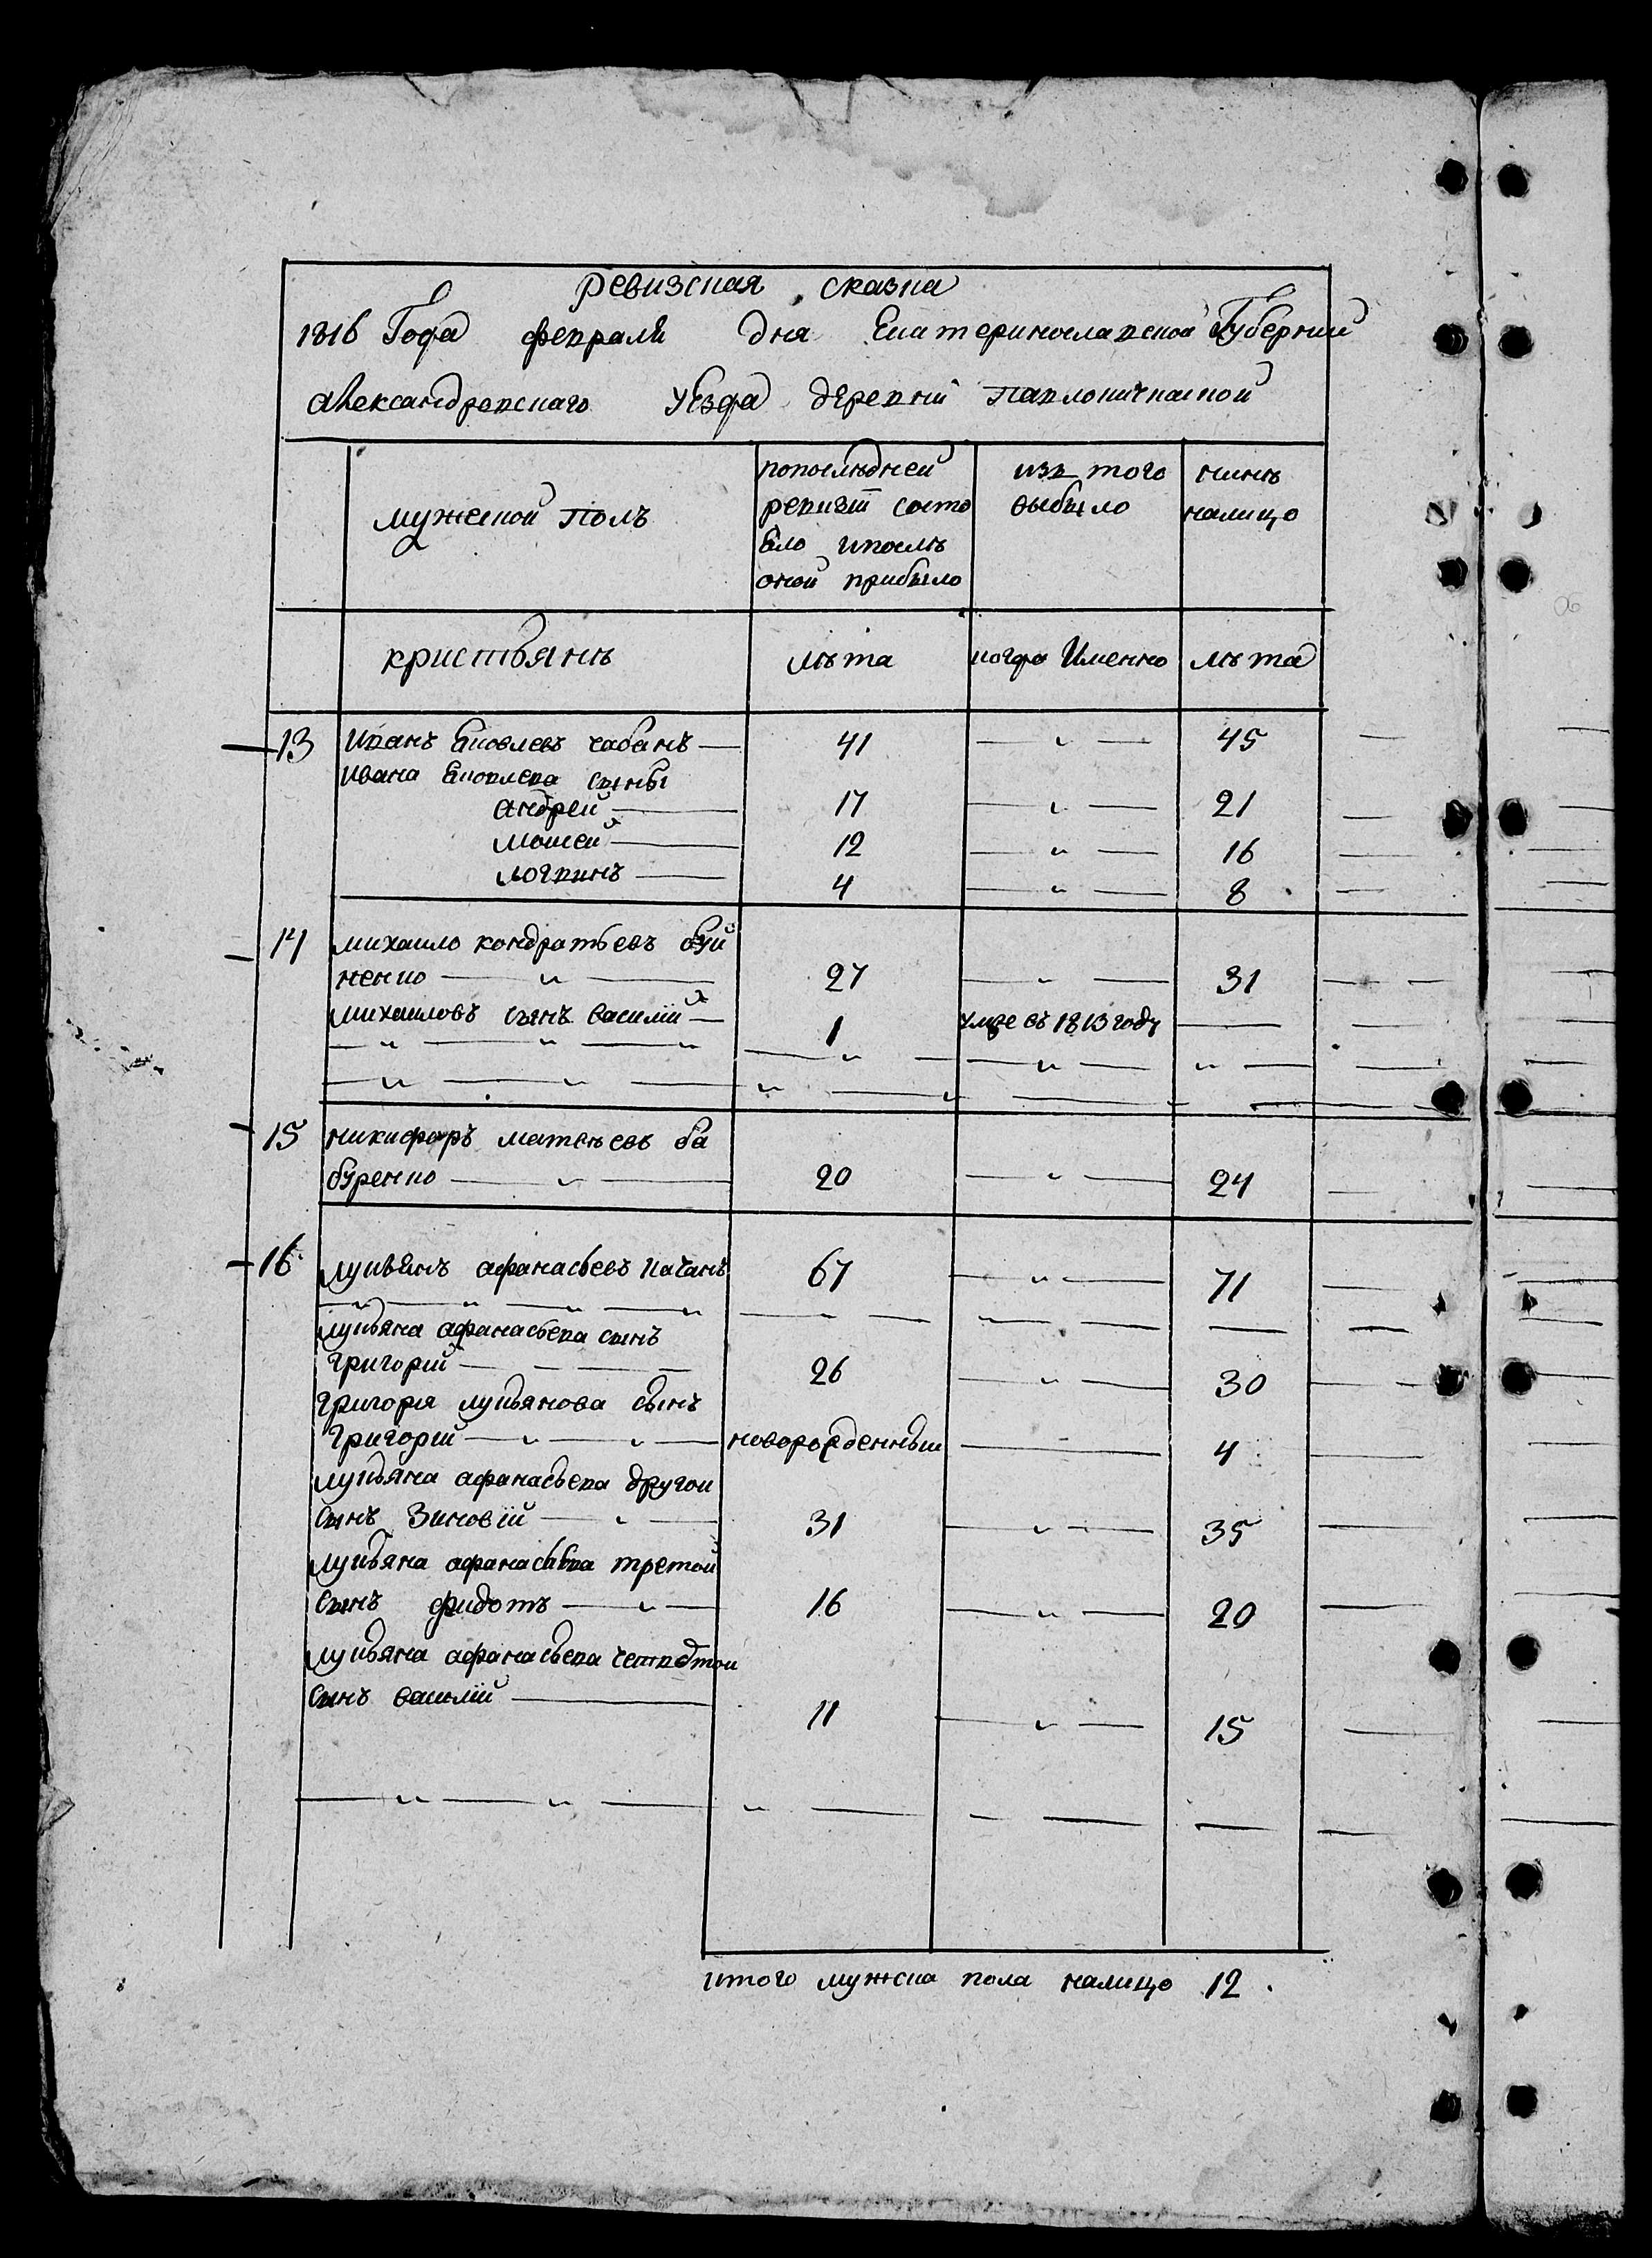 Ревизская сказка
1816 Года февраля дня Екатеринославской Губернии
Александровского уезда деревни Павлокичкаской
мужеской полъ
попослѣдней
ревизіи состо
яло ипослѣ
оной прибыло
изъ того
выбыло
нинѣ
налицо
кристьянъ
лѣта
когда Именно
лѣта
13 Иванъ Яковлевъ чабанъ 41 45
Ивана Яковлева сыны
андрей 17 21
Мосей 12 16
логвинъ 4 8
14 михаило кондратьевъ буй
ненко 27 31
михаиловъ сынъ василій 1 умре въ 1813 году
15 никифоръ матвѣевъ ба
буренко 20 24
16 лукьянъ афанасьевъ качанъ 67 71
лукьяна афанасьева сынъ
григорій 26 30
григоря лукьянова сынъ
григорій новорожденный 4
лукьяна афанасьева другои
сынъ Зиновій 31 35
лукьяна афанасьева третой
сынъ фидотъ 16 20
лукьяна афанасьева четвертои
сынъ василій 11 15
итого мужска пола налицо 12.